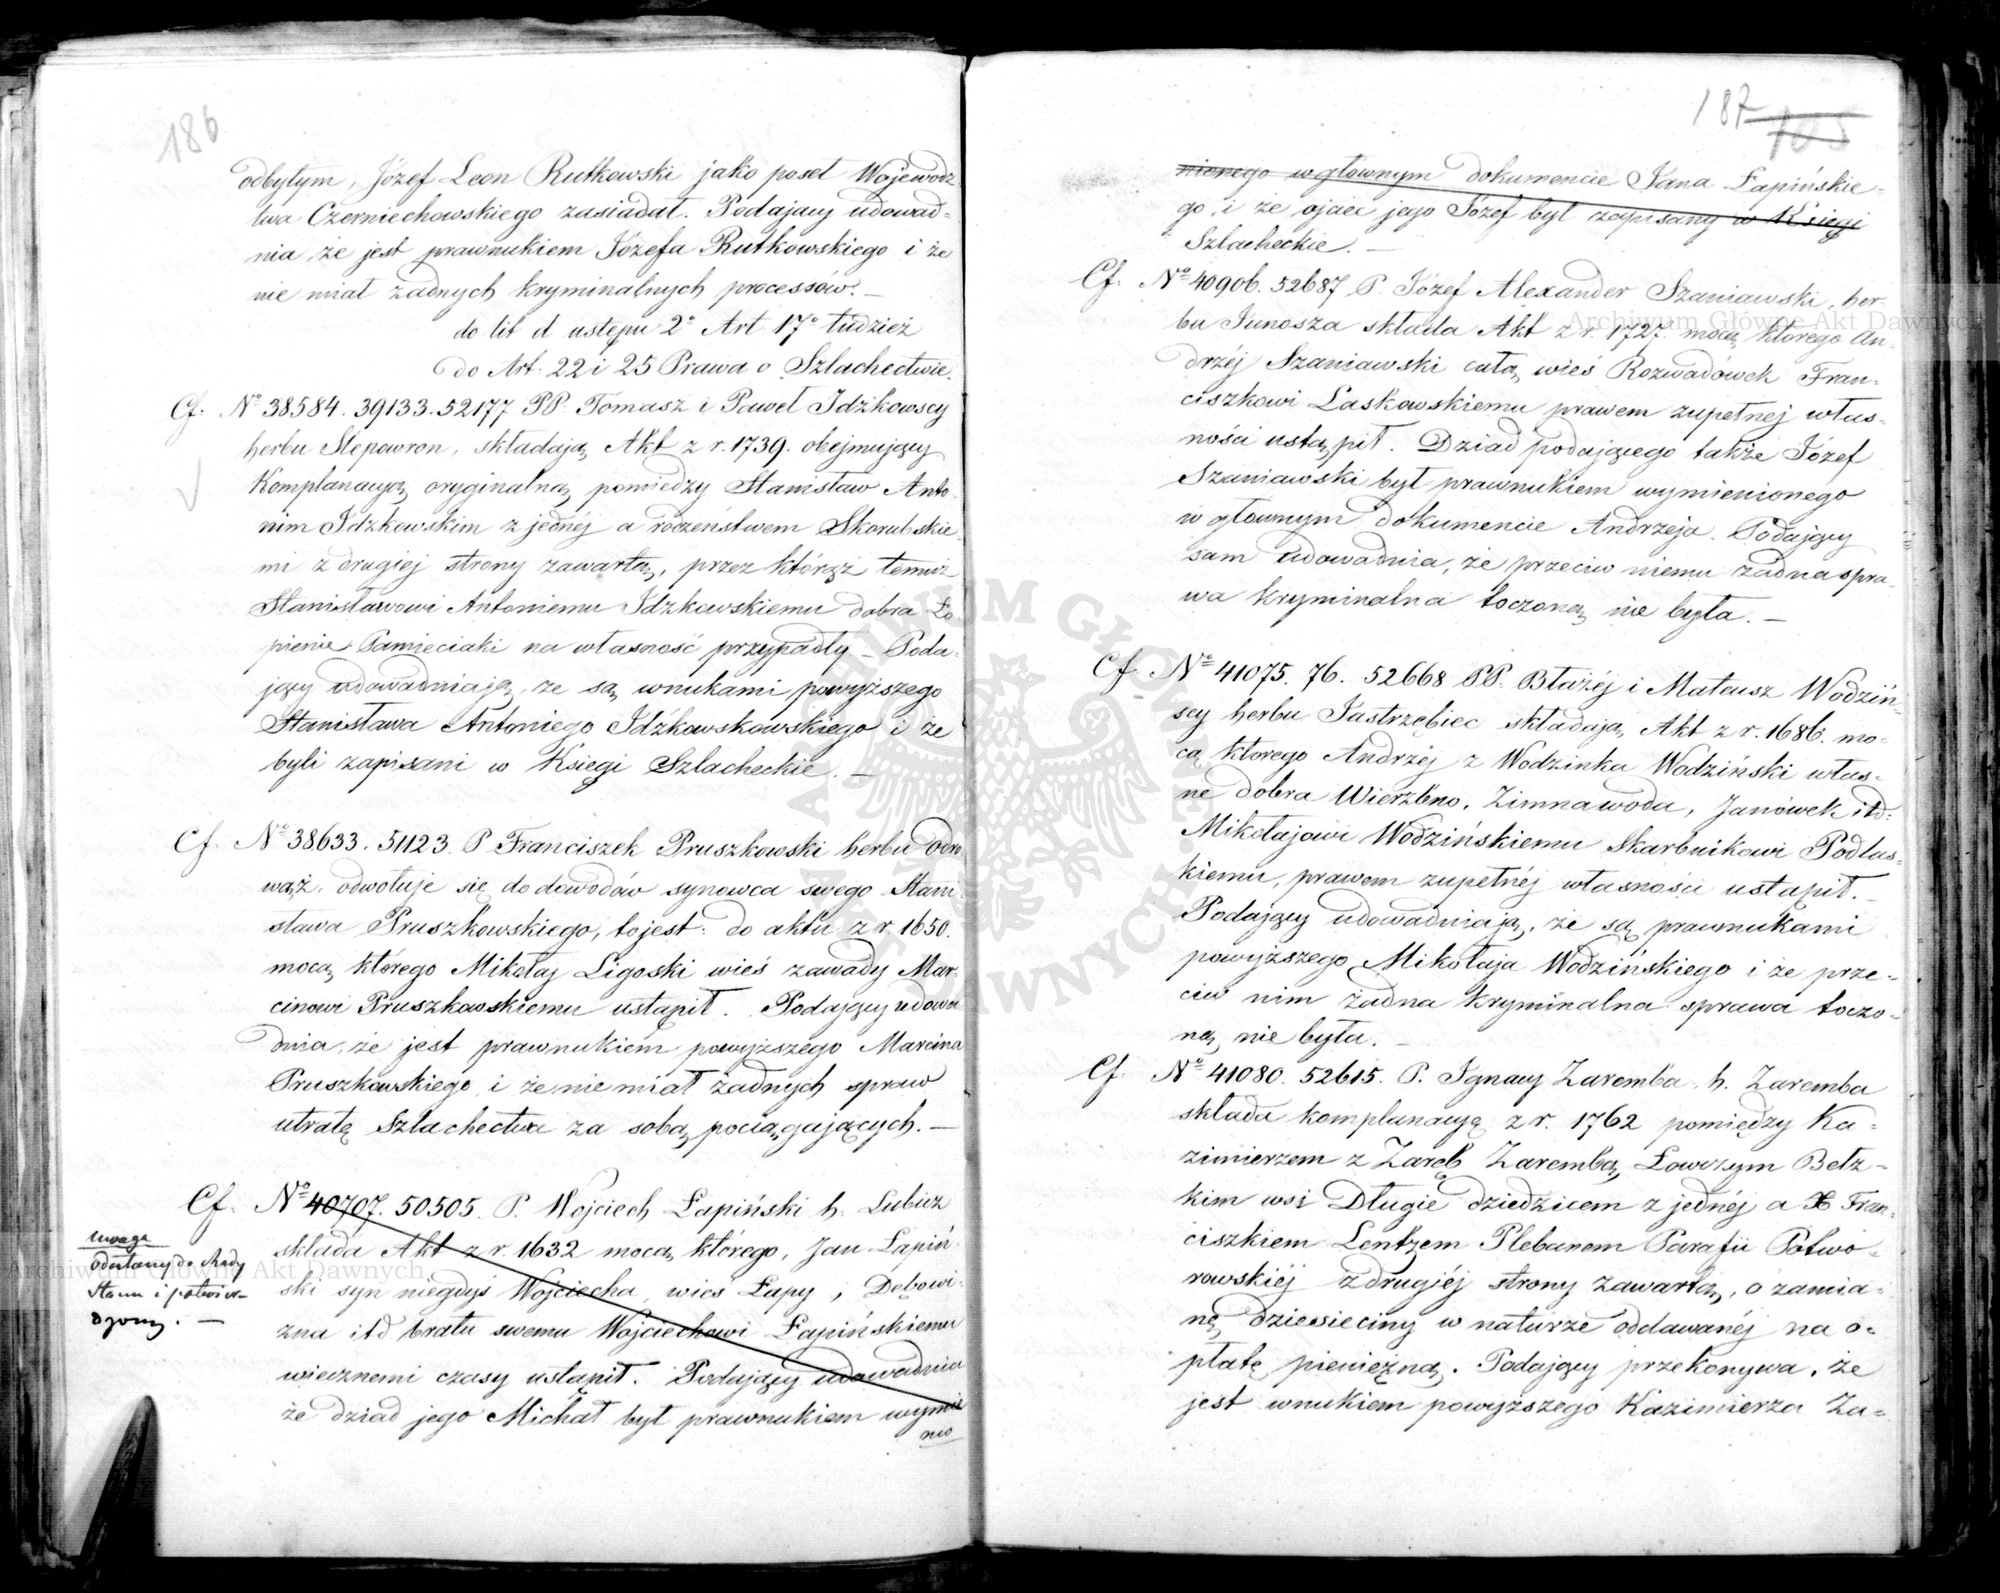 186
odbytym, Józef Leon Rutkowski jako poseł Wojewodz-
twa Czerniechowskiego zasiadał. Podający udowad-
nia, że jest prawnukiem Józefa Rutkowskiego i że
nie miał żadnych kryminalnych processów. —
do lit d ustępu 2° Art 17° tudzież
do Art. 22 i 25 Prawa o Szlachectwie.
Cf. No 38584. 39133. 52177 PP. Tomasz i Paweł Idźkowscy
herbu Slepowron, składają Akt z r. 1739. obejmujący
Komplanacyą oryginalną pomiedzy Stanisław Anto-
nim Idzkowskim z jednéj a rożeństwem Skorubskie-
mi z drugiej strony zawartą, przez którąż temuż
Stanisławowi Antoniemu Idzkowskiemu dobra Ło-
pienie Pamieciaki na własność przypadły — Poda-
jący udowadniają, że są wnukami powyższego
Stanisława Antoniego Idźkowskowskiego i że
byli zapisani w Księgi Szlacheckie. —
Cf. No 38633. 51123. P Franciszek Pruszkowski herbu Odro
wąż, odwołuje się do dowodów synowca swego Stani-
sława Pruszkowskiego, tojest: do aktu z r. 1650.
mocą którego Mikołaj Ligoski wieś zawady Mar-
cinowi Pruszkowskiemu ustąpił. Podający udowa
dnia, że jest prawnukiem powyższego Marcina
Pruszkowskiego i że nie miał żadnych spraw
utratę Szlachectwa za sobą pociągających. —
Cf. No 40707. 50505. P. Wojciech Łapiński h. Lubicz
składa Akt z r. 1632 mocą którego, Jan Łapiń-
ski syn niegdyś Wojciecha, wieś Łapy, Dębowi-
zna itd bratu swemu Wojciechowi Łapińskiemu
wiecznemi czasy ustąpił. Podający udowadnia
że dziad jego Michał był prawnukiem wymie
nio
uwaga
odesłany do Rady
Stanu i potwier-
dzony. —
187 185
nionego w głownym dokumencie Jana Łapińskie-
go, i że ojciec jego Józef był zapisany w Księgi
Szlacheckie. —
Cf. No 40906. 52687 P. Józef Alexander Szaniawski, her-
bu Junosza składa Akt z r. 1727. mocą ktorego An-
drzéj Szaniawski całą wieś Rozwadówek Fran-
ciszkowi Laskowskiemu prawem zupełnej włas-
ności ustąpił. Dziad podającego także Józef
Szaniawski był prawnukiem wymienionego
w głownym dokumencie Andrzeja. Podający
sam udowadnia, że przeciw niemu żadna spra-
wa kryminalna toczoną nie była. —
Cf. No 41075. 76. 52668 PP. Błażéj i Mateusz Wodziń-
scy herbu Jastrzębiec składają Akt z r. 1686. mo-
cą ktorego Andrzéj z Wodzinka Wodziński włas-
ne dobra Wierzbno, Zimnawoda, Janówek itd:
Mikołajowi Wodzińskiemu Skarbnikowi Podlas-
kiemu, prawem zupełnéj własności ustąpił. —
Podający udowadniają, że są prawnukami
powyższego Mikołaja Wodzińskiego i że prze-
ciw nim żadna kryminalna sprawa toczo-
ną nie była. —
Cf. No 41080. 52615. P. Ignacy Zaremba h. Zaremba
składa komplanacyę z r. 1762 pomiędzy Ka-
zimierzem z Zaręb Zarembą Łowczym Bełz-
kim wsi Długie dziedzicem z jednéj a X Fran-
ciszkiem Lentzem Plebanem Parafii Potwo-
rowskiéj z drugiéj strony zawartą, o zamia-
nę dziesieciny w naturze oddawanéj na o-
płatę pienieżną. Podający przekonywa, że
jest wnukiem powyższego Kazimierza Za-
Archiwum Główne Akt Dawnych
Archiwum Główne Akt Dawnych
ARCHIWUM GŁÓWNE AKT DAWNYCH